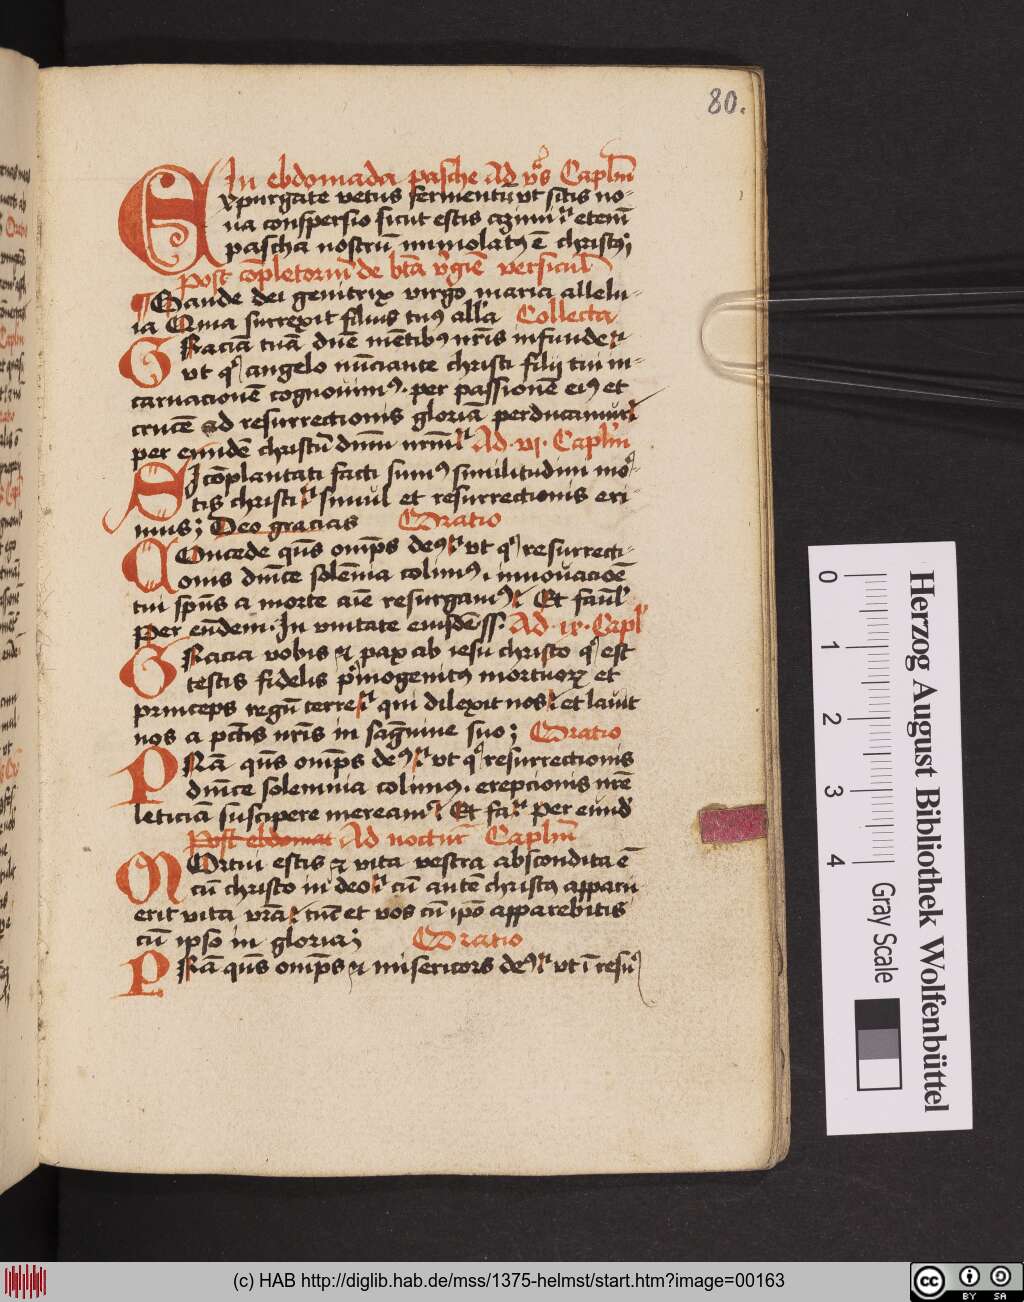 80.
In ebdomada pasche Ad vꝰs Caplm̄
Expurgate vetus fermentū vt sitis no-
ua conspersio sicut estis azimi etenī
pascha nostrū immolatꝰ ē christꝰ;
Post cōpletoriū de bt̄a v̓gīe versicul
Gaude dei genitrix virgo maria allelu-
ia Quia surrexit filius tuꝰ all'a Collecta
Graciā tuā dn̄e mētibꝰ nr̄is infunde
vt qͥ angelo nūciante christi filij tui in-
carnacionē cognouimꝰ. per passionē eiꝰ et
crucē ad resurrectionis gloriā perducamur
per eundē christū dnm̄ nrm̄ Ad .vi. Caplm̄
Si cōplantati facti sumꝰ similitudini mo-
tis christi simul et resurrectionis eri
mus; Deo gracias Oratio
Concede qus̄ omp̄s deꝰ vt qͥ resurrecti-
onis dn̄ice solēnia colimꝰ, innouacioē
tui sps̄ a morte aīe resurgamꝰ Et famul
Per eūdem. In vnitate eiusdē ss. Ad .ix. Capl
Gracia vobis ⁊ pax ab iesu christo qͥ est
testis fidelis pͥmogenitꝰ mortuoꝝ et
princeps regū terre qui dilexit nos et lauit
nos a pctīs nr̄is in sāgwine suo; Oratio
Prā qus̄ omp̄s deꝰ vt qͥ resurrectionis
dn̄ice solemnia colimꝰ. erepcionis nr̄e
leticiā suscipere mereamꝰ Et fa Per eund
Post ebdomat Ad nocturͦ Caplm̄
Mortui estis ⁊ vita vestra abscondita ē
cū christo in deo cū autē christꝰ apparu
erit vita vr̄a tūc et vos cū ipō apparebitis
cū ipso in gloria; Oratio
Prā qus̄ omp̄s ⁊ misericors deꝰ vt ī resur
0
1
2
3
4
Gray Scale
Herzog August Bibliothek Wolfenbüttel
(c) HAB http://diglib.hab.de/mss/1375-helmst/start.htm?image=00163
cc BY SA